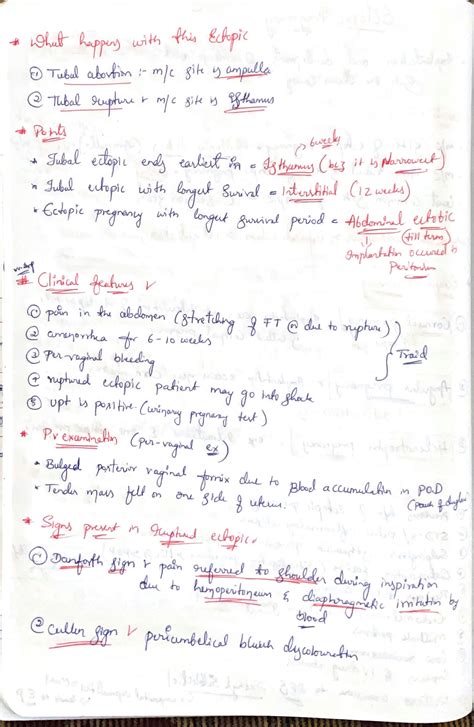 * What happens with this Ectopic
① Tubal abortion :- m/c site is ampulla
② Tubal rupture r m/c site is Isthamus
* Points
6 weeks
* Tubal ectopic ends earliest in = Isthamus (bcz it is Narrowest)
* Tubal ectopic with longest survival = Interstitial (12 weeks)
* Ectopic pregnancy with longest survival period = Abdominal ectobic
(till term)
Implantation occured in
Peritoneum
# Clinical features
① pain in the abdomen (stretching of FT due to rupture)
② amenorrhea for 6-10 weeks
③ Per-vaginal bleeding
Traid
④ ruptured ectopic patient may go into shock
⑤ upt is positive (urinary pregnancy test)
* Pv examination (per-vaginal ex)
* Bulged posterior vaginal fornix due to Blood accumulation in POD
(pouch of douglas)
* Tender mass felt on one side of uterus.
* Signs present in ruptured ectopic
① Danforth sign r pain referred to shoulder during inspiration
due to hemoperitoneum & diaphragmatic irritation by
blood
② Cullen sign r pericumbelical bluish dyscolouration